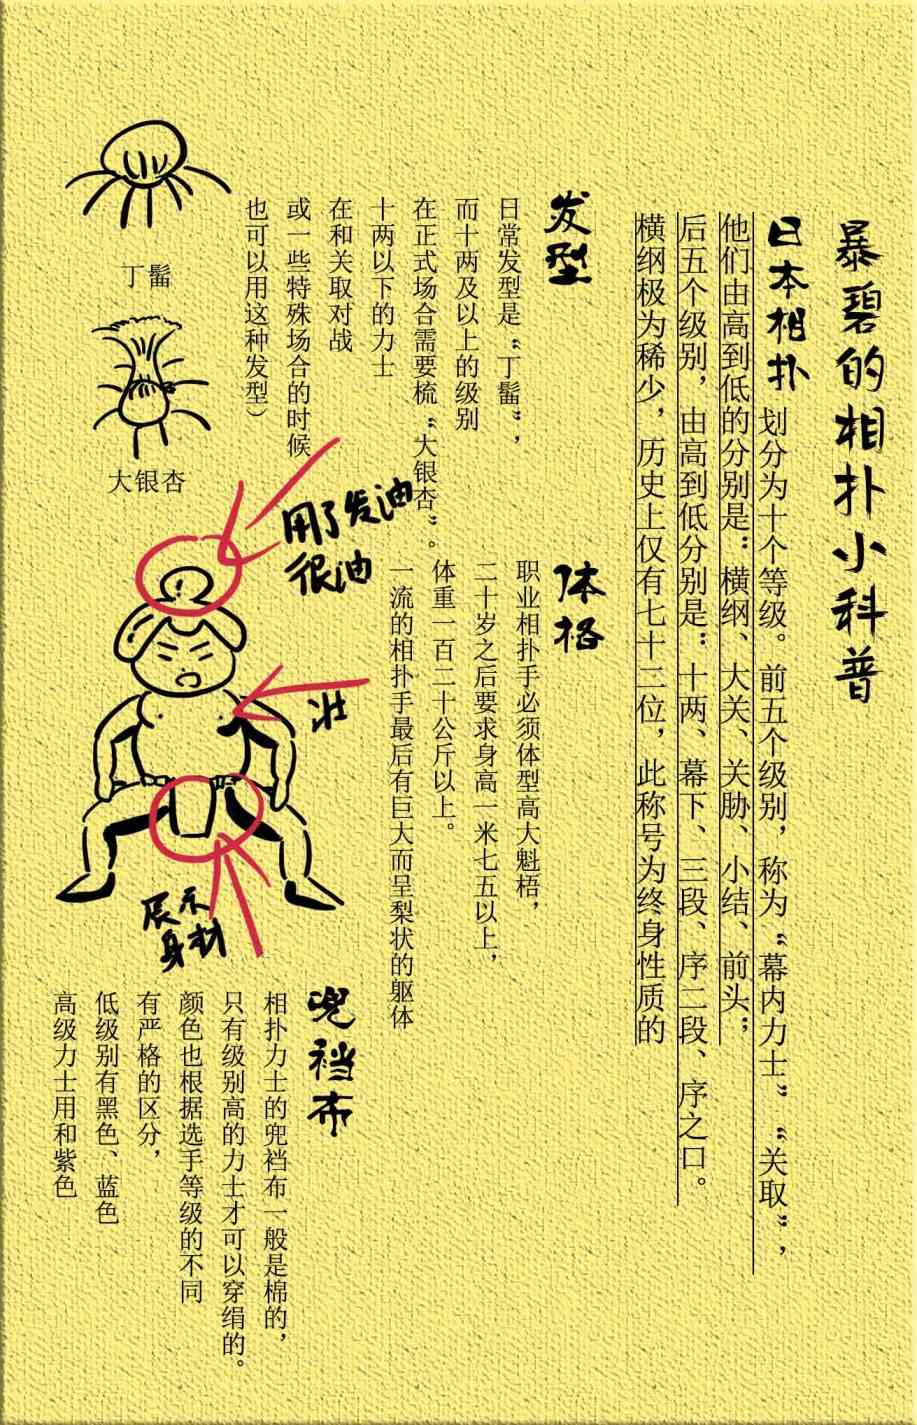 暴碧的相扑小科普
日本相扑 划分为十个等级。前五个级别，称为“幕内力士”“关取”，
他们由高到低的分别是：横纲、大关、关胁、小结、前头”
后五个级别，由高到低分别是：十两、幕下、三段、序二段、序之口。
横纲极为稀少，历史上仅有七十二位，此称号为终身性质的
发型
日常发型是“丁髷”，
而十两及以上的级别
在正式场合需要梳“大银杏”。
十两以下的力士
在和关取对战
或一些特殊场合的时候
也可以用这种发型）
丁髷
大银杏
体格
职业相扑手必须体型高大魁梧，
二十岁之后要求身高一米七五以上，
体重一百二十公斤以上。
一流的相扑手最后有巨大而呈梨状的躯体
用了发油
很油
壮
展示
身材
兜裆布
相扑力士的兜裆布一般是棉的，
只有级别高的力士才可以穿绢的。
颜色也根据选手等级的不同
有严格的区分，
低级别有黑色、蓝色
高级力士用和紫色